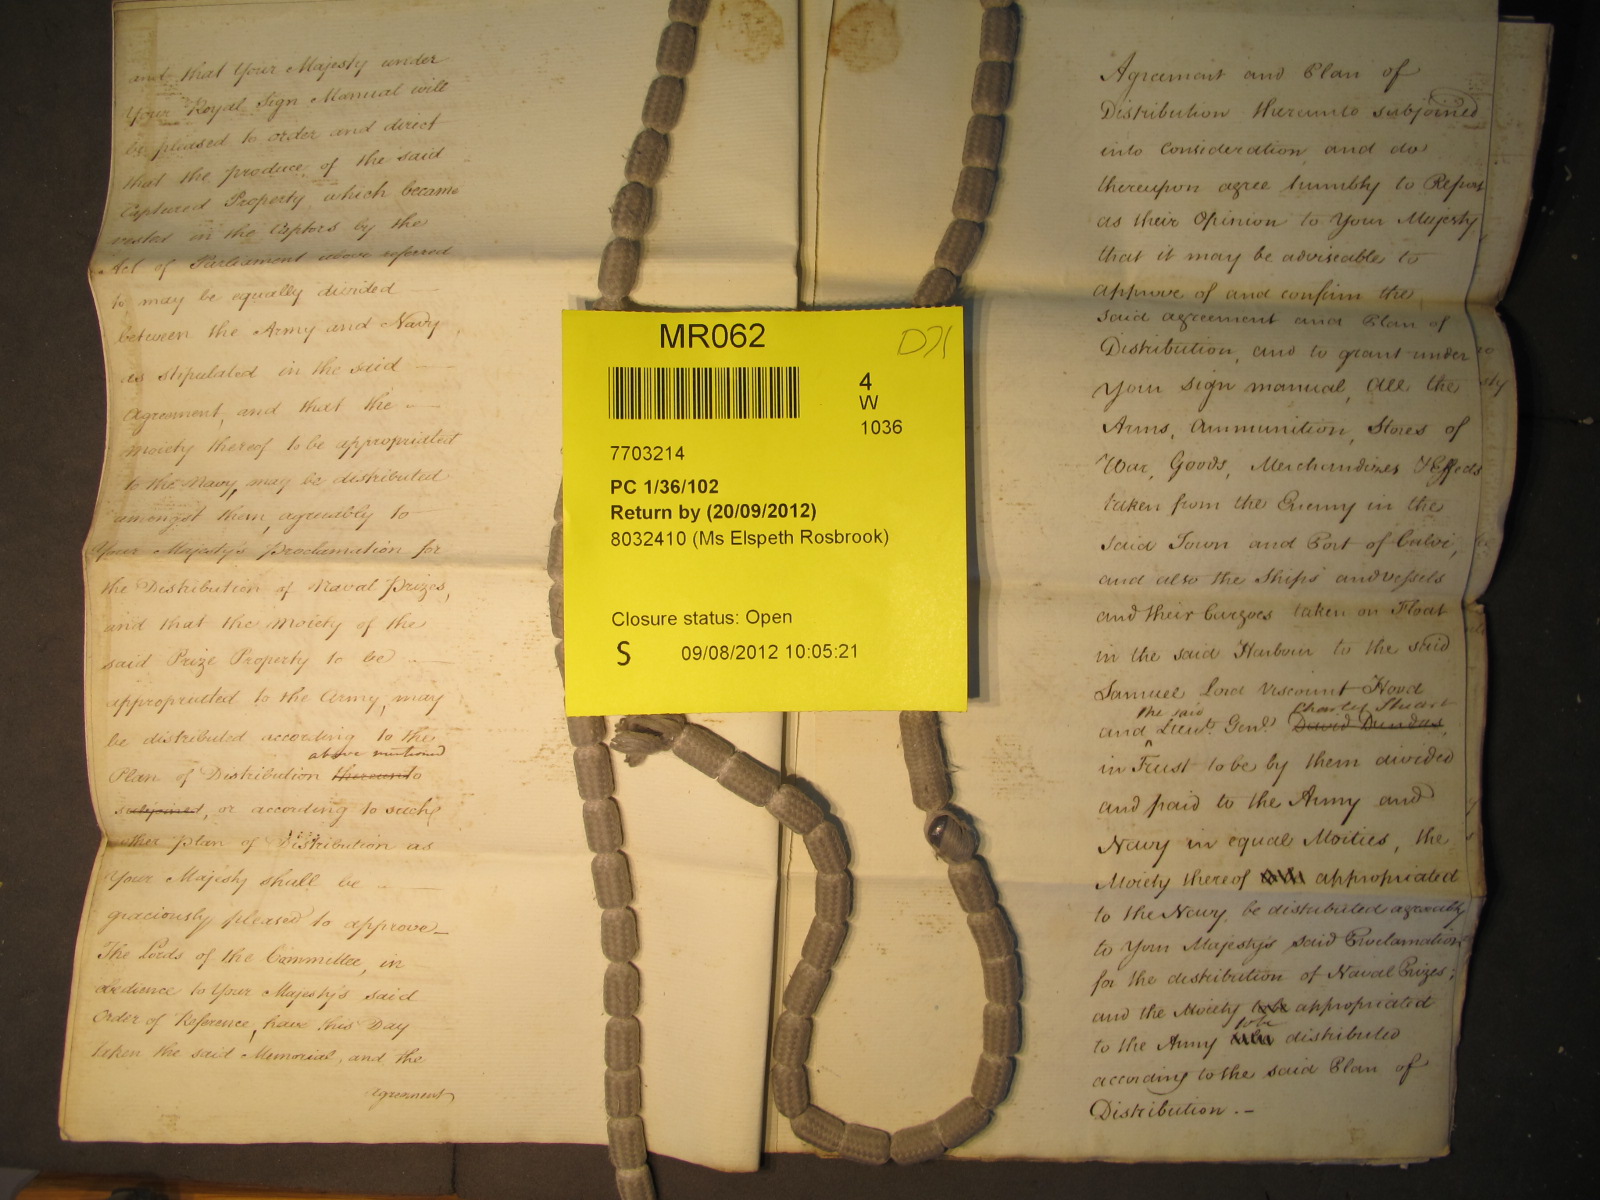 and that Your Majesty under
Your Royal Sign Manual will
be pleased to order and direct
that the produce of the said
Captured Property, which became
vested in the Captors by the
Act of Parliament above referred
to may be equally divided —
between the Army and Navy,
as stipulated in the said —
Agreement, and that the —
moiety thereof to be appropriated
to the Navy, may be distributed
amongst them, agreeably to
Your Majesty's Proclamation for
the Distribution of Naval Prizes,
and that the Moiety of the
said Prize Property to be —
appropriated to the Army, may
be distributed according to the
above mentioned
Plan of Distribution thereunto
subjoined, or according to such
other plan of Distribution as
Your Majesty shall be —
graciously pleased to approve —
The Lords of the Committee, in
obedience to Your Majesty's said
Order of Reference, have this Day
taken the said Memorial, and the
agreement
MR062
D71
4
W
1036
7703214
PC 1/36/102
Return by (20/09/2012)
8032410 (Ms Elspeth Rosbrook)
Closure status: Open
S 09/08/2012 10:05:21
Agreement and Plan of
Distribution thereunto subjoined
into Consideration, and do
thereupon agree humbly to Report
as their Opinion to Your Majesty
that it may be adviseable to
approve of and confirm the
said agreement and Plan of
Distribution, and to grant under
Your Sign manual, All the
Arms, Ammunition, Stores of
War, Goods, Merchandizes & Effects
taken from the Enemy in the
said Town and Port of Calvi,
and also the Ships and vessels
and their Cargoes taken on Float
in the said Harbour to the said
Samuel Lord Viscount Hood
the said Charles Stuart
and Lieut. Genl. David Dundas,
in Trust to be by them divided
and paid to the Army and
Navy in equal Moities, the
Moiety thereof appropriated
to the Navy, be distributed agreeably
to Your Majesty's said Proclamation
for the distribution of Naval Prizes;
and the Moiety appropriated
to be
to the Army distributed
according to the said Plan of
Distribution. —